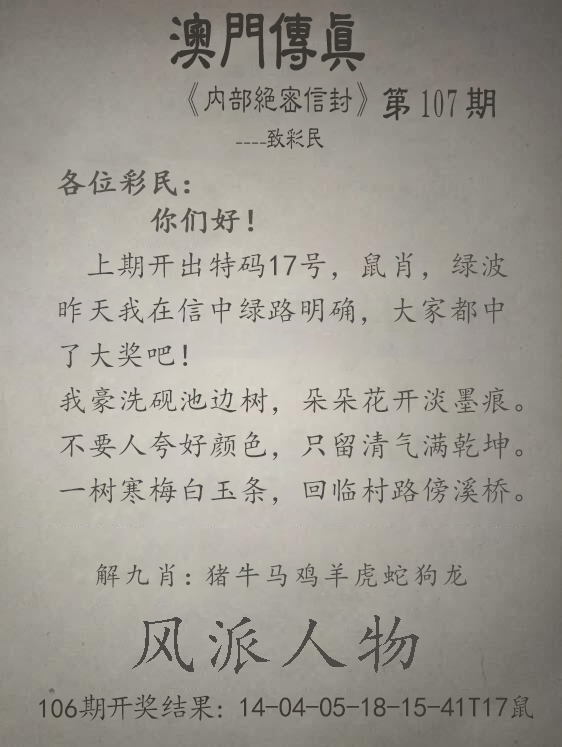 澳門傳眞
《内部絕密信封》第107期
----致彩民
各位彩民：
你们好！
上期开出特码17号，鼠肖，绿波
昨天我在信中绿路明确，大家都中
了大奖吧！
我豪洗砚池边树，朵朵花开淡墨痕。
不要人夸好颜色，只留清气满乾坤。
一树寒梅白玉条，回临村路傍溪桥。
解九肖：猪牛马鸡羊虎蛇狗龙
风派人物
106期开奖结果：14-04-05-18-15-41T17鼠